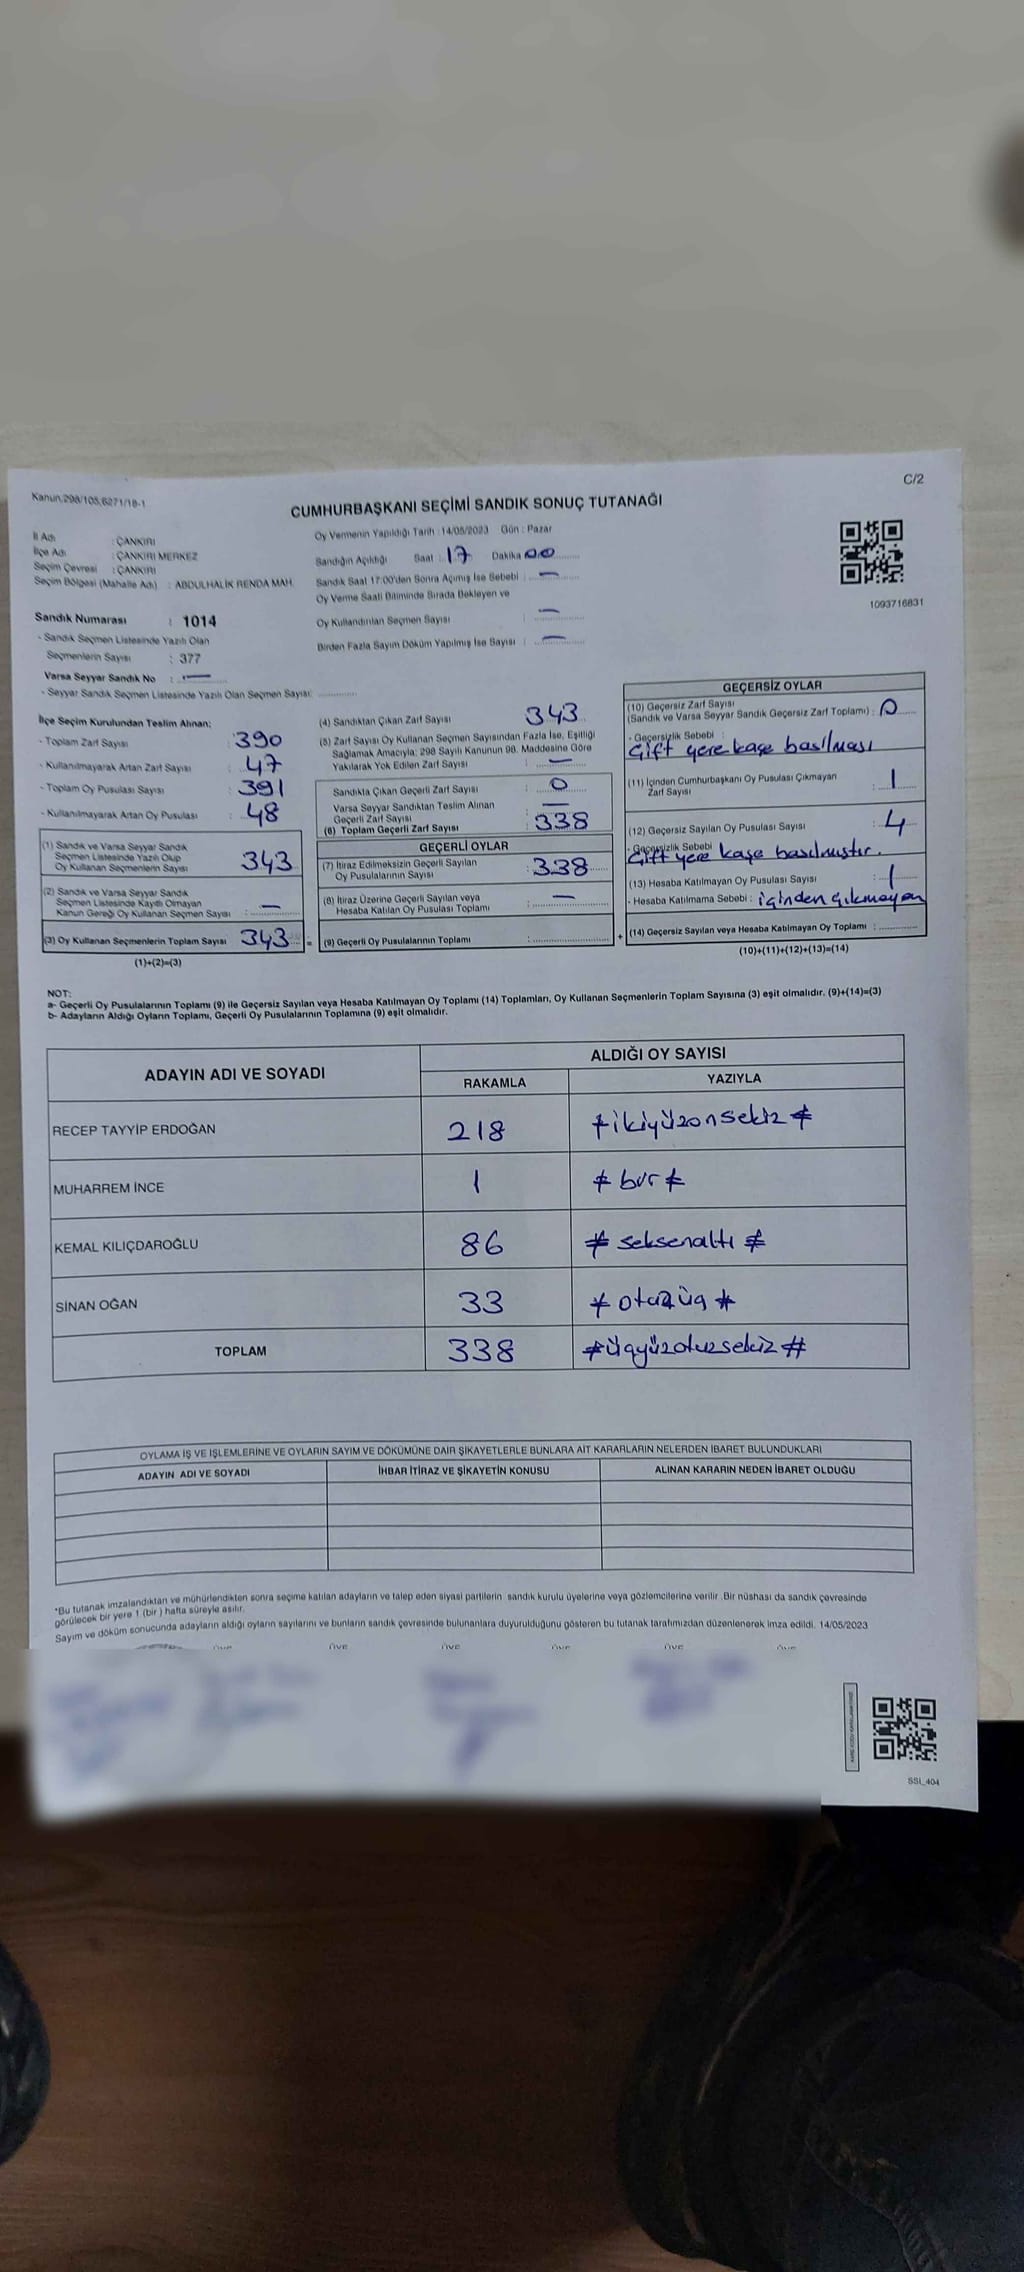 C/2
Kanun,298/105,6271/18-1
CUMHURBAŞKANI SEÇİMİ SANDIK SONUÇ TUTANAĞI
İl Adı : ÇANKIRI
İlçe Adı : ÇANKIRI MERKEZ
Seçim Çevresi : ÇANKIRI
Seçim Bölgesi (Mahalle Adı) : ABDULHALİK RENDA MAH.
Sandık Numarası : 1014
- Sandık Seçmen Listesinde Yazılı Olan
Seçmenlerin Sayısı : 377
Varsa Seyyar Sandık No : —
- Seyyar Sandık Seçmen Listesinde Yazılı Olan Seçmen Sayısı: ............
Oy Vermenin Yapıldığı Tarih : 14/05/2023 Gün : Pazar
Sandığın Açıldığı Saat : 17 Dakika 00
Sandık Saat 17:00'den Sonra Açımış İse Sebebi : —
Oy Verme Saati Bitiminde Sırada Bekleyen ve
Oy Kullandırılan Seçmen Sayısı : —
Birden Fazla Sayım Döküm Yapılmış İse Sayısı : —
1093716831
İlçe Seçim Kurulundan Teslim Alınan;
- Toplam Zarf Sayısı : 390
- Kullanılmayarak Artan Zarf Sayısı : 47
- Toplam Oy Pusulası Sayısı : 391
- Kullanılmayarak Artan Oy Pusulası : 48
(1) Sandık ve Varsa Seyyar Sandık
Seçmen Listesinde Yazılı Olup
Oy Kullanan Seçmenlerin Sayısı 343
(2) Sandık ve Varsa Seyyar Sandık
Seçmen Listesinde Kayıtlı Olmayan
Kanun Gereği Oy Kullanan Seçmen Sayısı : —
(3) Oy Kullanan Seçmenlerin Toplam Sayısı 343 =
(1)+(2)=(3)
(4) Sandıktan Çıkan Zarf Sayısı 343
(5) Zarf Sayısı Oy Kullanan Seçmen Sayısından Fazla İse, Eşitliği
Sağlamak Amacıyla; 298 Sayılı Kanunun 98. Maddesine Göre
Yakılarak Yok Edilen Zarf Sayısı : —
Sandıkta Çıkan Geçerli Zarf Sayısı : 0
Varsa Seyyar Sandıktan Teslim Alınan
Geçerli Zarf Sayısı : —
(6) Toplam Geçerli Zarf Sayısı : 338
GEÇERLİ OYLAR
(7) İtiraz Edilmeksizin Geçerli Sayılan
Oy Pusulalarının Sayısı : 338
(8) İtiraz Üzerine Geçerli Sayılan veya
Hesaba Katılan Oy Pusulası Toplamı : —
(9) Geçerli Oy Pusulalarının Toplamı : ............ +
GEÇERSİZ OYLAR
(10) Geçersiz Zarf Sayısı
(Sandık ve Varsa Seyyar Sandık Geçersiz Zarf Toplamı) : 0
- Geçersizlik Sebebi :
Çift yere kaşe basılması
(11) İçinden Cumhurbaşkanı Oy Pusulası Çıkmayan
Zarf Sayısı : 1
(12) Geçersiz Sayılan Oy Pusulası Sayısı : 4
- Geçersizlik Sebebi
Çift yere kaşe basılmıştır.
(13) Hesaba Katılmayan Oy Pusulası Sayısı : 1
- Hesaba Katılmama Sebebi : içinden çıkmayan
(14) Geçersiz Sayılan veya Hesaba Katılmayan Oy Toplamı : ............
(10)+(11)+(12)+(13)=(14)
NOT:
a- Geçerli Oy Pusulalarının Toplamı (9) ile Geçersiz Sayılan veya Hesaba Katılmayan Oy Toplamı (14) Toplamları, Oy Kullanan Seçmenlerin Toplam Sayısına (3) eşit olmalıdır. (9)+(14)=(3)
b- Adayların Aldığı Oyların Toplamı, Geçerli Oy Pusulalarının Toplamına (9) eşit olmalıdır.
ADAYIN ADI VE SOYADI ALDIĞI OY SAYISI
RAKAMLA YAZIYLA
RECEP TAYYİP ERDOĞAN 218 # ikiyüzonsekiz #
MUHARREM İNCE 1 # bir #
KEMAL KILIÇDAROĞLU 86 # seksenaltı #
SİNAN OĞAN 33 # otuzüç #
TOPLAM 338 # üçyüzotuzsekiz #
OYLAMA İŞ VE İŞLEMLERİNE VE OYLARIN SAYIM VE DÖKÜMÜNE DAİR ŞİKAYETLERLE BUNLARA AİT KARARLARIN NELERDEN İBARET BULUNDUKLARI
ADAYIN ADI VE SOYADI İHBAR İTİRAZ VE ŞİKAYETİN KONUSU ALINAN KARARIN NEDEN İBARET OLDUĞU
*Bu tutanak imzalandıktan ve mühürlendikten sonra seçime katılan adayların ve talep eden siyasi partilerin sandık kurulu üyelerine veya gözlemcilerine verilir .Bir nüshası da sandık çevresinde
görülecek bir yere 1 (bir ) hafta süreyle asılır.
Sayım ve döküm sonucunda adayların aldığı oyların sayılarını ve bunların sandık çevresinde bulunanlara duyurulduğunu gösteren bu tutanak tarafımızdan düzenlenerek imza edildi. 14/05/2023
ÜYE ÜYE ÜYE ÜYE ÜYE ÜYE
SSI_404